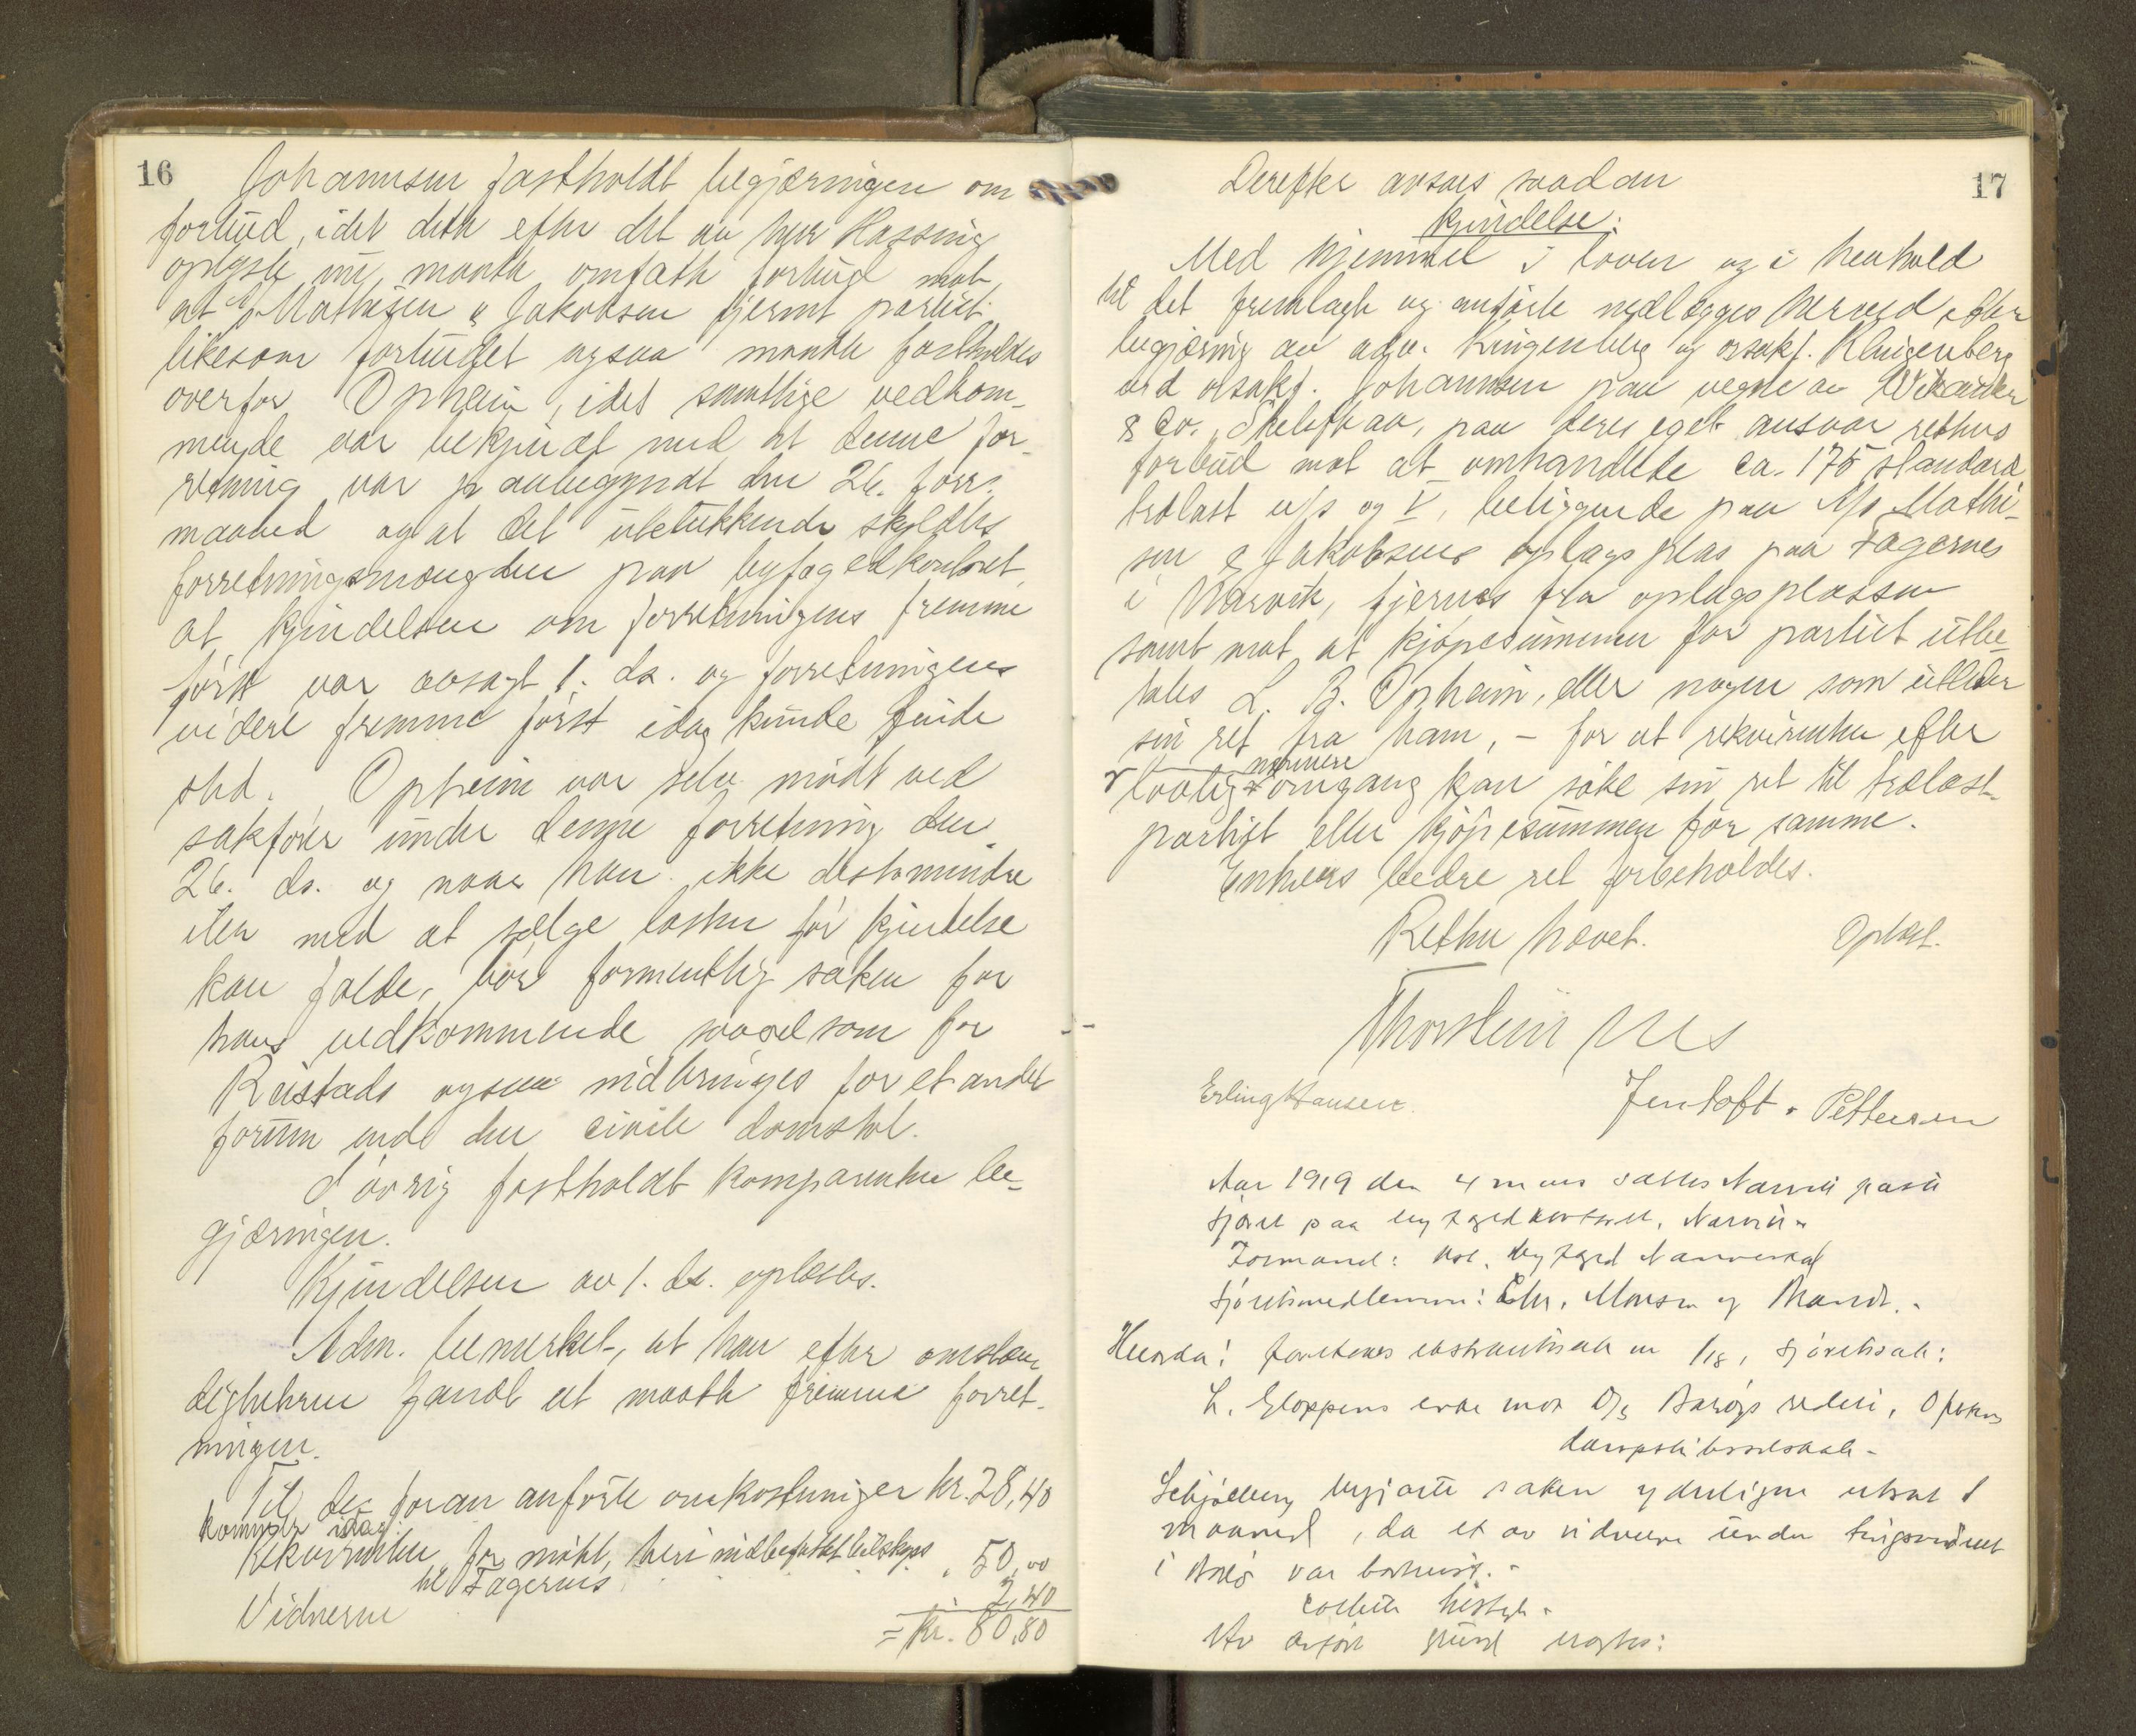 16
Johannsen fastholdt begjæringen om
forbud, idet dette efter det av herr Hassing
oplyste nu maatte omfatte forbud mot
at A/s Mathisen & Jakobsen fjernet partiet
likesom forbudet ogsaa maatte fastholdes
overfor Opheim, idet samtlige vedkom-
mende var bekjendt med at denne for-
retning var paabegyndt den 26. forr.
maaned og at det utelukkende skyldtes
forretningsmængden paa byfogedkontoret,
at kjendelsen om forretningens fremme
først var avsagt 1. ds. og forretningens
videre fremme først idag kunde finde
sted. Opheim var selv møtt ved
sakfører under denne forretning den
26. ds. og naar han ikke destomindre
iler med at sælge lasten før kjendelse
kan falde, bør formentlig saken for
hans vedkommende saavel som for
Reistads ogsaa indbringes for et andet
forum end den civile domstol.
I øvrig fastholdt komparenten be-
gjæringen.
Kjendelsen av 1. ds. oplæstes.
Adm. bemerket, at han efter omstæn-
dighetene fandt at maatte fremme forret-
ningen.
Til de foran anførte omkostninger kr. 28,40
kommer idag:
Rekvirenten for møtet, heri indbefattet bilskyss
til Fagernes " 50,00
Vidnerne " 2,40
= Kr. 80,80
17
Derefter avsaes saadan
kjendelse:
Med hjemmel i loven og i henhold
til det fremlagte og anførte nedlægges herved efter
begjæring av adv. Klingenberg og orsakf. Klingenberg
ved orsakf. Johannsen paa vegne av
& Co., Skellefteaa, paa deres eget ansvar rettens
forbud mot at omhandlede ca. 175 standard
trælast u/s og V, beliggende paa A/s Mathi-
sen & Jakobsens oplagsplas paa Fagernes
i Narvik, fjernes fra oplagsplassen
samt mot at kjøpesummen for partiet utbe-
tales L. B. Opheim, eller nogen som utleder
sin ret fra ham, – for at rekvirenten efter
nærmere
lovlig omgang kan søke sin ret til trælast-
partiet eller kjøpesummen for samme.
Enhvers bedre ret forbeholdes.
Retten hævet. Oplæst.
Thorstein Nes
Erling Hansen. Jentoft Pettersen
Aar 1919 den 4 mars sattes Narvik
sjøret paa byfogedkontoret, Narvik.
Formand: kst. byfoged
Sjøretsmedlemmer: Chr. Monsen og
Herda! foretokes sak nr 1/18, sjøretssak:
L. Gloppens enke mot D/s rederi,
dampskibsselskab.
Schjølberg begjærte saken yderligere utsat 1
maaned, da et av vidnerne under tingsvidnet
i var bortreist.

Av anført grund